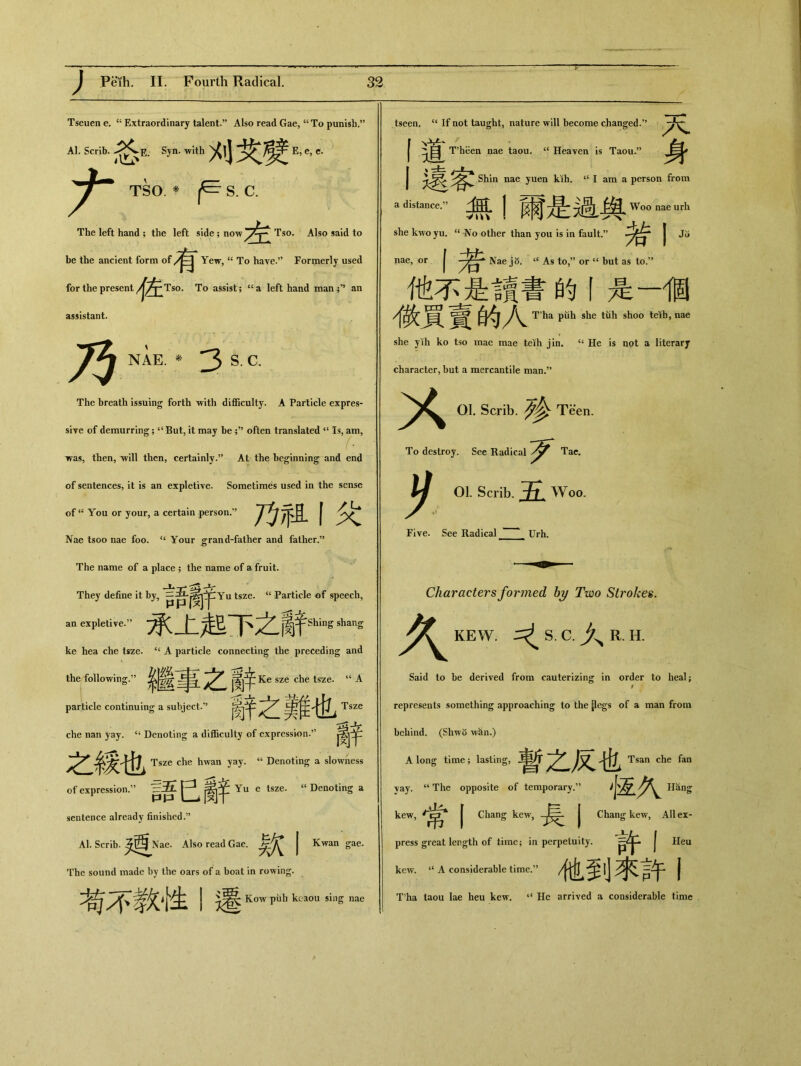 丿 Peĭh. II. Fourth Radical. 32
Tseuen e. “ Extraordinary talent.” Also read Gae, “ To punish.”
Al. Scrib. 㣻 E. Syn. with 刈艾嬖 E, e, e.
𠂇 TSO. * S. C.
The left hand ; the left side ; now 左 Tso. Also said to
be the ancient form of 有 Yew, “ To have.” Formerly used
for the present 佐 Tso. To assist ; “ a left hand man ;” an
assistant.
乃 NAE. * S. C.
The breath issuing forth with difficulty. A Particle expres-
sive of demurring ; “ But, it may be ;” often translated “ Is, am,
was, then, will then, certainly.” At the beginning and end
of sentences, it is an expletive. Sometimes used in the sense
of “ You or your, a certain person.” 乃祖 | 父
Nae tsoo nae foo. “ Your grand-father and father.”
The name of a place ; the name of a fruit.
They define it by, 語辭 Yu tsze. “ Particle of speech,
an expletive.” 承上起下之辭 Shing shang
ke hea che tsze. “ A particle connecting the preceding and
the following.” 繼事之辭 Ke sze che tsze. “ A
particle continuing a subject.” 辭之難也 Tsze
che nan yay. “ Denoting a difficulty of expression.” 辭
之緩也 Tsze che hwan yay. “ Denoting a slowness
of expression.” 語已辭 Yu e tsze. “ Denoting a
sentence already finished.”
Al. Scrib. 迺 Nae. Also read Gae. 欵 | Kwan gae.
The sound made by the oars of a boat in rowing.
苟不教性 | 遷 Kow püh keaou sing nae
tseen. “ If not taught, nature will become changed.” 天
| 道 T'hëen nae taou. “ Heaven is Taou.” 身
| 遠客 Shin nae yuen kĭh. “ I am a person from
a distance.” 無 | 爾是過與 Woo nae urh
she kwo yu. “ No other than you is in fault.” 若 | Jŏ
nae, or | 若 Nae jŏ. “ As to,” or “ but as to.”
他不是讀書的 | 是一個
做買賣的人 T'ha püh she tüh shoo teĭh, nae
she yĭh ko tso mae mae teĭh jin. “ He is not a literary
character, but a mercantile man.”
Ol. Scrib. 殄 Tëen.
To destroy. See Radical 歹 Tae.
Ol. Scrib. 五 Woo.
Five. See Radical 二 Urh.
Characters formed by Two Strokes.
久 KEW. S. C. R. H.
Said to be derived from cauterizing in order to heal;
represents something approaching to the legs of a man from
behind. (Shwŏ wăn.)
A long time ; lasting, 暫之反也 Tsan che fan
yay. “ The opposite of temporary.” 恆久 Hăng
kew, 常 | Chang kew, 長 | Chang kew, All ex-
press great length of time; in perpetuity. 許 | Heu
kew. “ A considerable time.” 他到來許 |
T'ha taou lae heu kew. “ He arrived a considerable time